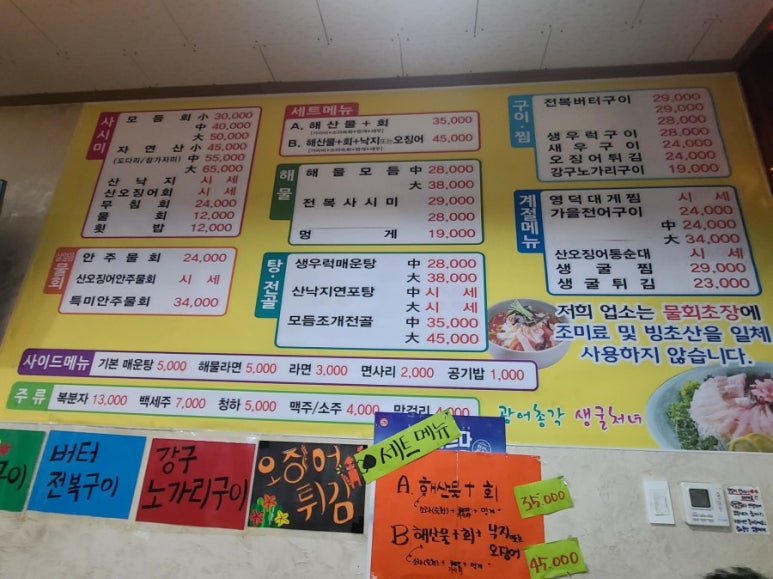 사시미
모듬회 小 30,000
中 40,000
大 50,000
자연산 小 45,000
(도다리/참가자미) 中 55,000
大 65,000
산낙지 시세
산오징어회 시세
무침회 24,000
물회 12,000
횟밥 12,000
물회
안주물회 24,000
산오징어안주물회 시세
특미안주물회 34,000
세트메뉴
A. 해산물+회 35,000
B. 해산물+회+낙지또는오징어 45,000
해물
해물모듬 中 28,000
大 38,000
전복사시미 29,000
28,000
멍게 19,000
탕·전골
생우럭매운탕 中 28,000
大 38,000
산낙지연포탕 中 시세
大 시세
모듬조개전골 中 35,000
大 45,000
구이·찜
전복버터구이 29,000
29,000
28,000
생우럭구이 28,000
새우구이 24,000
오징어튀김 24,000
강구노가리구이 19,000
계절메뉴
영덕대게찜 시세
가을전어구이 24,000
中 24,000
大 34,000
산오징어통순대 시세
생굴찜 29,000
생굴튀김 23,000
저희 업소는 물회초장에
조미료 및 빙초산을 일체
사용하지 않습니다.
사이드메뉴 기본 매운탕 5,000 해물라면 5,000 라면 3,000 면사리 2,000 공기밥 1,000
주류 복분자 13,000 백세주 7,000 청하 5,000 맥주/소주 4,000 막걸리 4,000
광어총각 생굴처녀
구이
버터
전복구이
강구
노가리구이
오징어
튀김
세트메뉴
A. 해산물+회
35,000
B 해산물+회+낙지또는
오징어
45,000